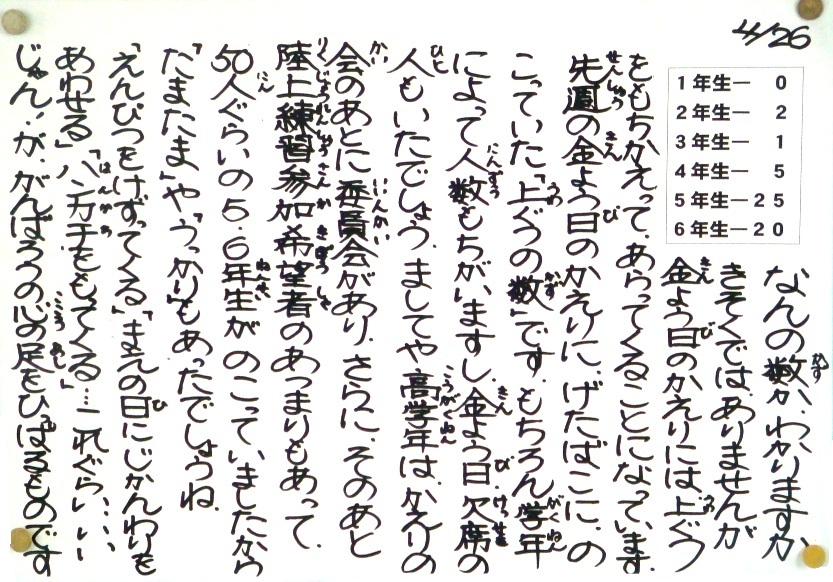 4/26
1年生― 0
2年生― 2
3年生― 1
4年生― 5
5年生―25
6年生―20
なんの数か、わかりますか
きそくでは、ありませんが
金よう日のかえりには、上ぐつ
をもちかえって、あらってくることになっています
先週の金よう日のかえりに、げたばこに、の
こっていた「上ぐつの数」です。もちろん学年
によって人数もちがいますし、金よう日、欠席の
人もいたでしょう。ましてや高学年は、かえりの
会のあとに委員会があり、さらに、そのあと
陸上練習参加希望者のあつまりもあって、
50人ぐらいの5.6年生がのこっていましたから
「たまたま」や「うっかり」もあったでしょうね。
「えんぴつをけずってくる」「まえの日にじかんわりを
あわせる」「ハンカチをもってくる…これぐらい、いい
じゃん!」が、がんばろうの心の足をひっぱるものです